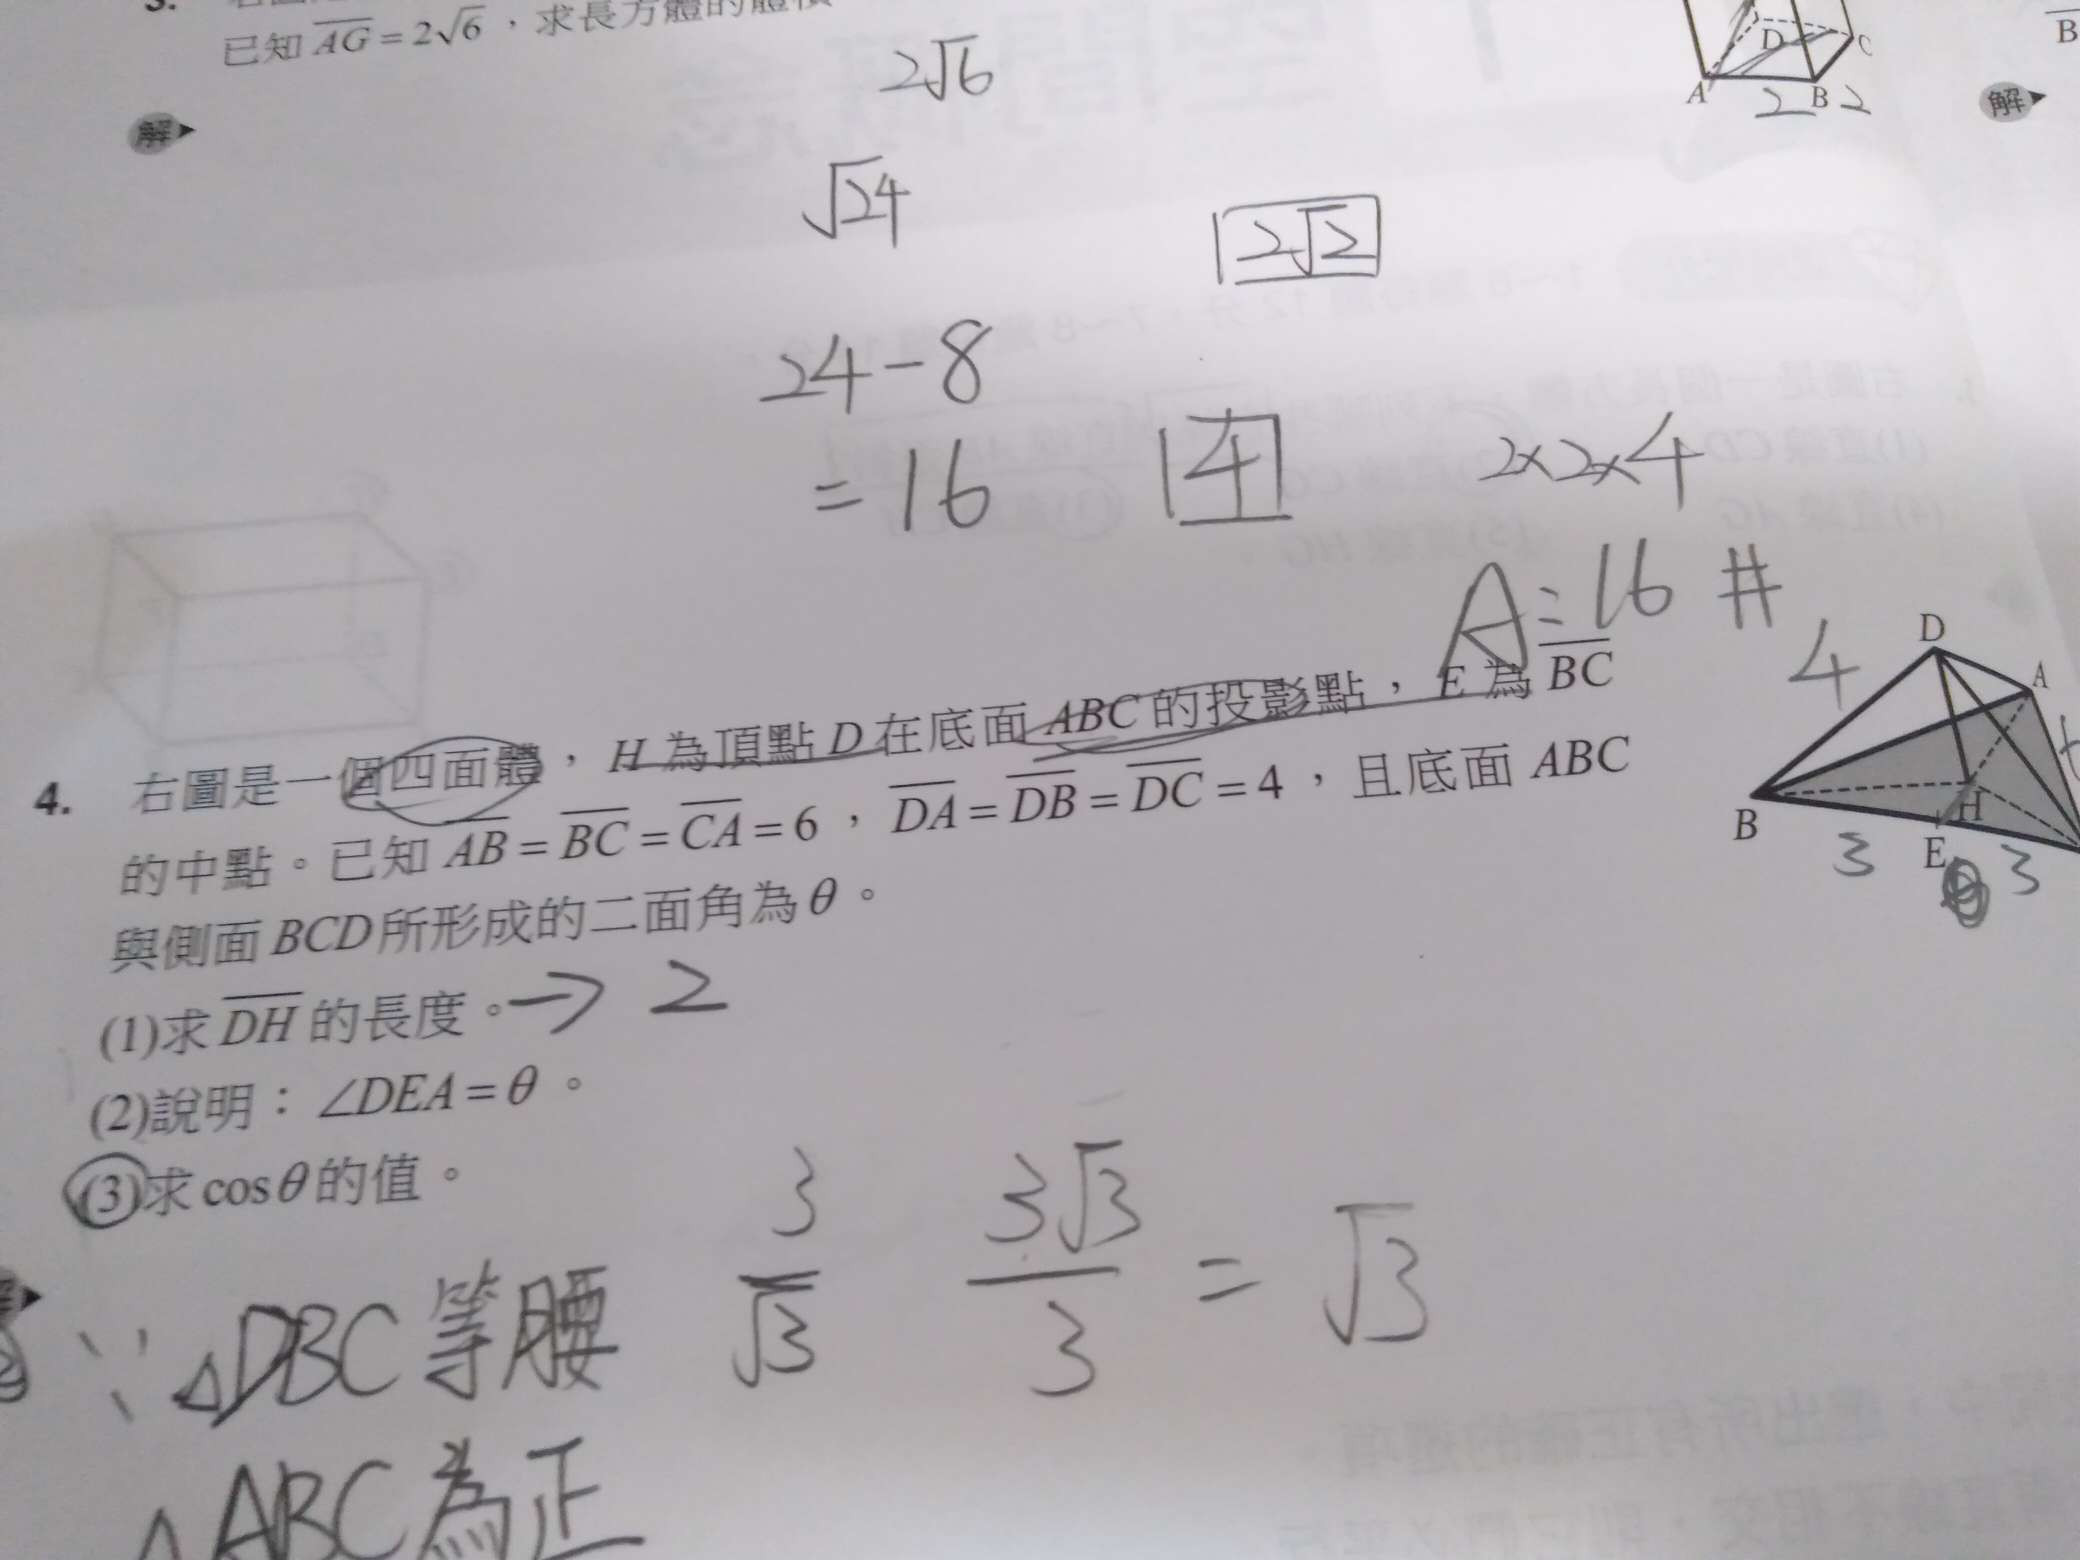 3.
已知 AG = 2√6,求長方體的體積
2√6
D
C
A
B
2
2
B
解
解
√24
2√2
24-8
= 16
4
2×2×4
A=16 #
4. 右圖是一個四面體,H 為頂點 D 在底面 ABC 的投影點,E 為 BC
的中點。已知 AB = BC = CA = 6,DA = DB = DC = 4,且底面 ABC
與側面 BCD 所形成的二面角為 θ。
4
D
A
B
H
E
3
3
(1)求 DH 的長度。→ 2
(2)說明:∠DEA = θ。
(3)求 cosθ 的值。
3/√3
3√3/3 = √3
∵ △DBC 等腰
△ABC 為正